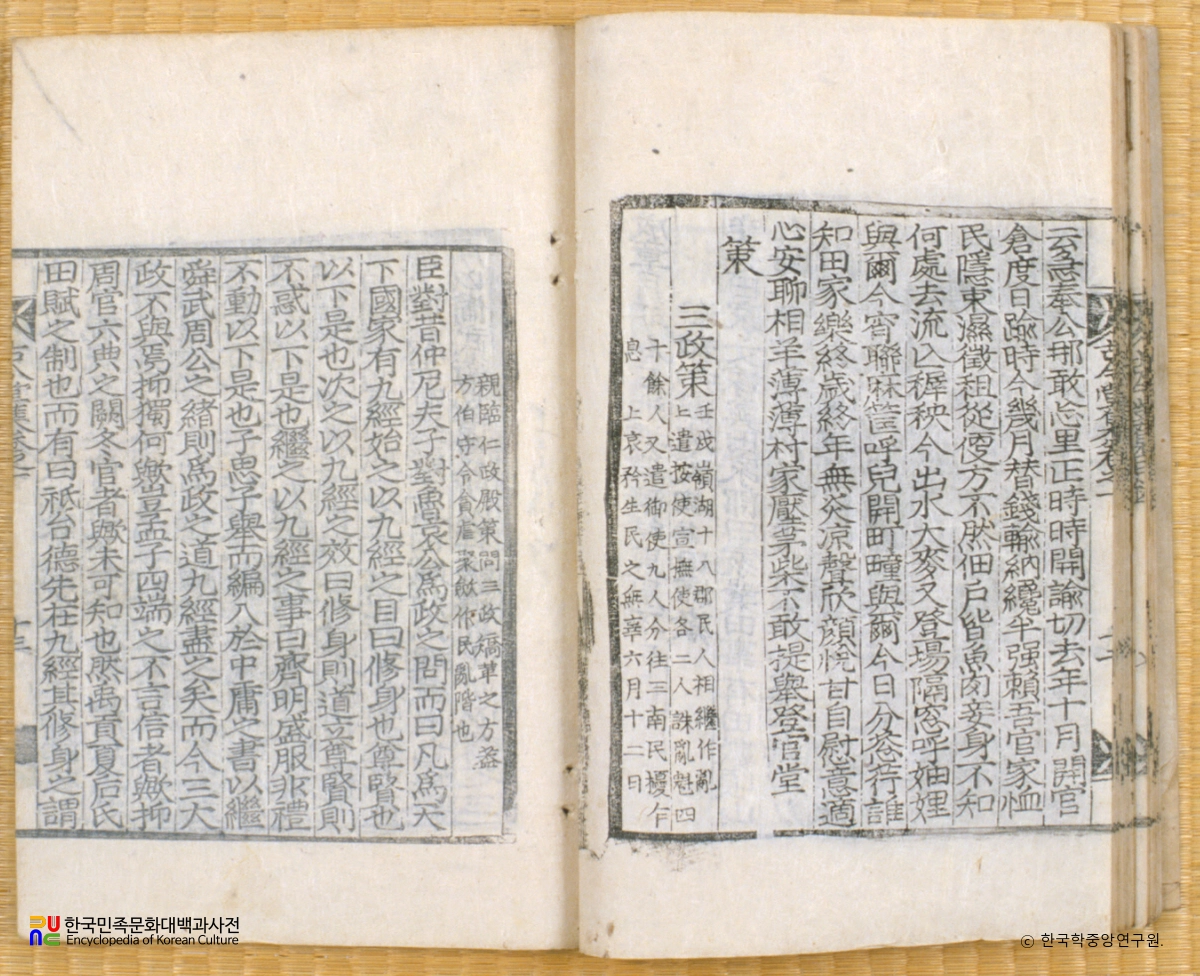 云急奉公那敢忘里正時時開諭切去年十月開官
倉度日踰時今幾月替錢輸納纔半强賴吾官家恤
民隱東濕徵租從便方不然佃戶皆魚肉妾身不知
何處去流入稗秧今出水大麥又登場隔窓呼妯娌
與爾今宵聯麻筐呼兒開町疃與爾今日分忩行誰
知田家樂終歲終年無炎凉聲欣顔悅甘自慰意適
心安聊相羊薄薄村家壓茅柴不敢提擧登官堂
策
三政策
壬戌嶺湖十八郡民人相繼作亂
上遣按使宣撫使各二人誅亂魁四
十餘人又遣御使九人分往三南民擾乍
息 上哀矜生民之無辜六月十二日
親臨仁政殿策問三政矯革之方盖
方伯守令貪虐聚斂作民亂階也
臣對昔仲尼夫子對魯哀公爲政之問而曰凡爲天
下國家有九經始之以九經之目曰修身也尊賢也
以下是也次之以九經之效曰修身則道立尊賢則
不惑以下是也繼之以九經之事曰齊明盛服非禮
不動以下是也子思子擧而編入於中庸之書以繼
舜武周公之緖則爲政之道九經盡之矣而今三大
政不與焉抑獨何歟豈孟子四端之不言信者歟抑
周官六典之闕冬官者歟未可知也然禹貢夏后氏
田賦之制也而有曰祗台德先在九經其修身之謂
한국민족문화대백과사전
Encyclopedia of Korean Culture
ⓒ 한국학중앙연구원.